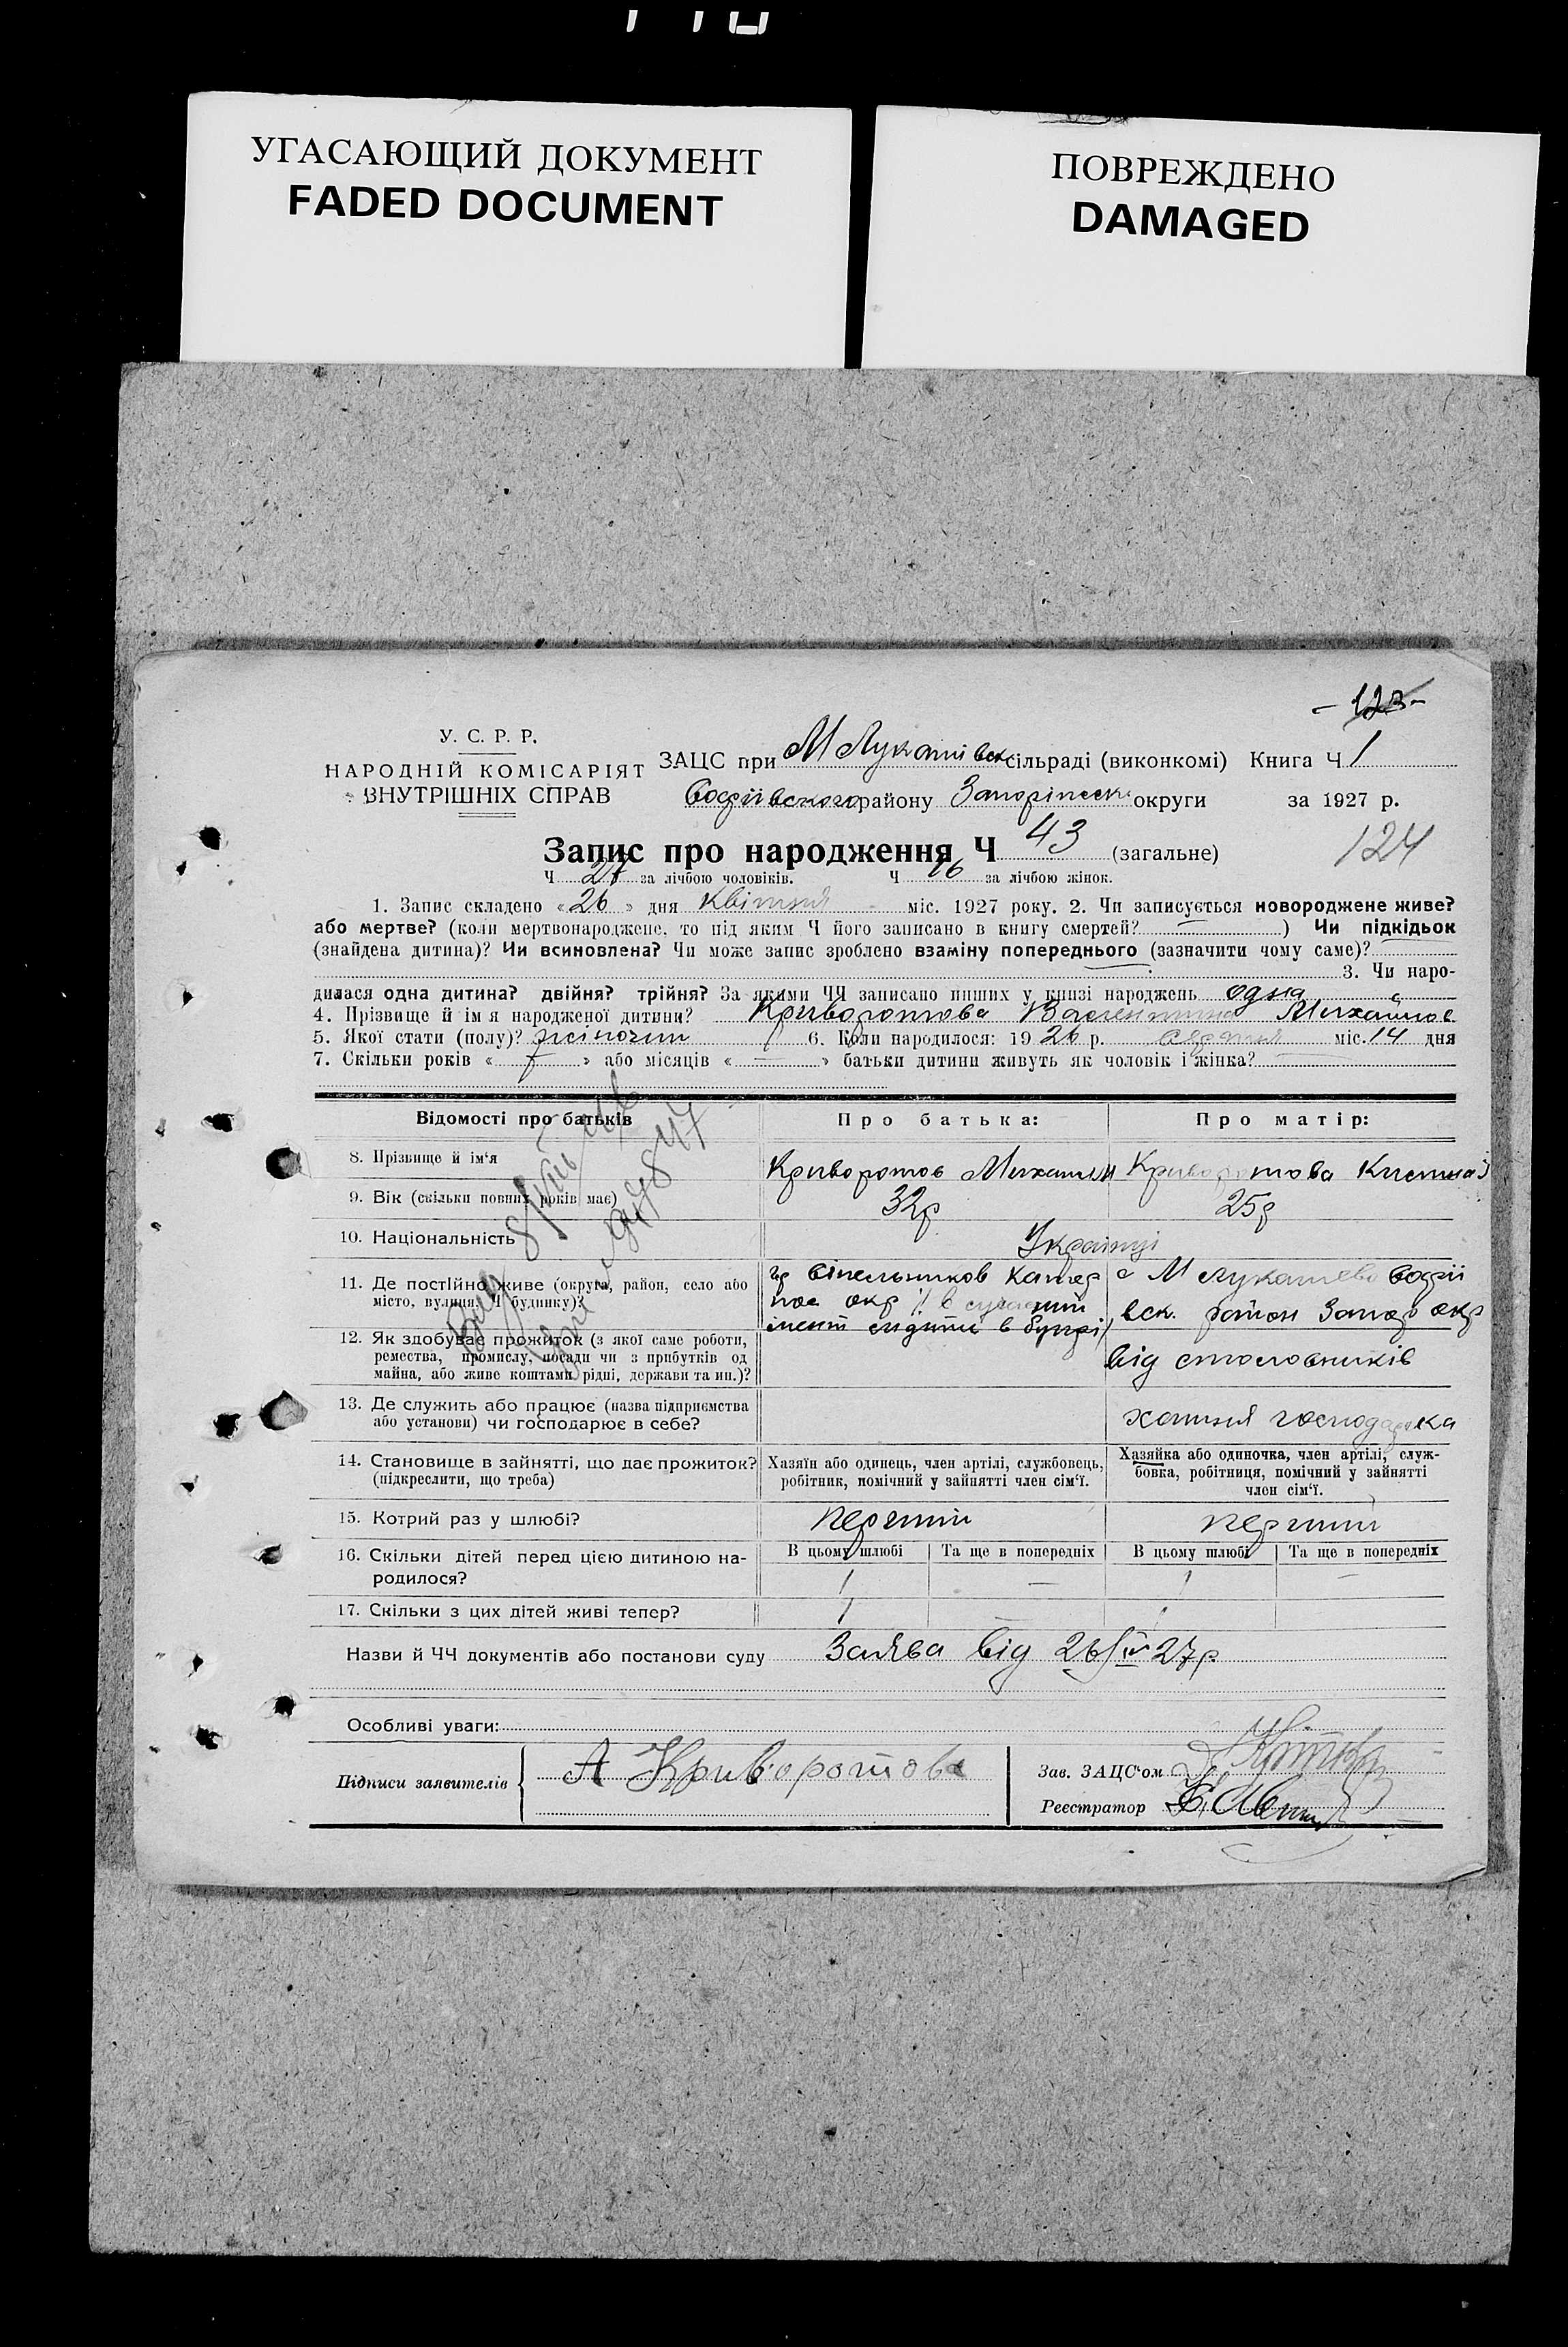 УГАСАЮЩИЙ ДОКУМЕНТ
FADED DOCUMENT
ПОВРЕЖДЕНО
DAMAGED
- 123 -
У. С. Р. Р.
НАРОДНІЙ КОМІСАРІЯТ
ВНУТРІШНІХ СПРАВ
ЗАЦС при М Лукашівск сільраді (виконкомі) Книга Ч 1
Софіївского району Запоріжськ округи за 1927 р.
Запис про народження Ч 43 (загальне)
124
Ч 27 за лічбою чоловіків. Ч 16 за лічбою жінок.
1. Запис складено «26» дня Квітня міс. 1927 року. 2. Чи записується новороджене живе?
або мертве? (коли мертвонароджене, то під яким Ч його записано в книгу смертей? — ) Чи підкідьок
(знайдена дитина)? Чи всиновлена? Чи може запис зроблено взаміну попереднього (зазначити чому саме)?
3. Чи наро-
дилася одна дитина? двійня? трійня? За якими ЧЧ записано инших у книзі народжень одна
4. Прізвище й ім'я народженої дитини? Криворотова Валентина Михайлов
5. Якої стати (полу)? жіночти 6. Коли народилося: 19 26 р. міс. 14 дня
7. Скільки років « » або місяців « — » батьки дитини живуть як чоловік і жінка? —
Відомості про батьків
Про батька:
Про матір:
8. Прізвище й ім'я
Криворотов Михаил
Криворотова
9. Вік (скільки повних років має)
32р
25р
10. Національність
Українці
11. Де постійно живе (округа, район, село або
місто, вулиця, Ч будинку)?
гр Сінельников Катер
пос окр (в сучасний
момент сидить в Бупрі)
с М Лукашево Софії
вск. район Запор окр
12. Як здобуває прожиток (з якої саме роботи,
ремества, промислу, посади чи з прибутків од
майна, або живе коштами рідні, держави та ин.)?
від столовників
13. Де служить або працює (назва підприємства
або установи) чи господарює в себе?
хатня господарка
14. Становище в зайнятті, що дає прожиток?
(підкреслити, що треба)
Хазяїн або одинець, член артілі, службовець,
робітник, помічний у зайнятті член сім'ї.
Хазяйка або одиночка, член артілі, служ-
бовка, робітниця, помічний у зайнятті
член сім'ї.
15. Котрий раз у шлюбі?
перший
перший
16. Скільки дітей перед цією дитиною на-
родилося?
В цьому шлюбі Та ще в попередніх В цьому шлюбі Та ще в попередніх
1 — 1 —
17. Скільки з цих дітей живі тепер?
1 — 1
Назви й ЧЧ документів або постанови суду Заява від 26/IV 27р
Особливі уваги:
Підписи заявителів А Криворотова
Зав. ЗАЦС'ом
Реєстратор